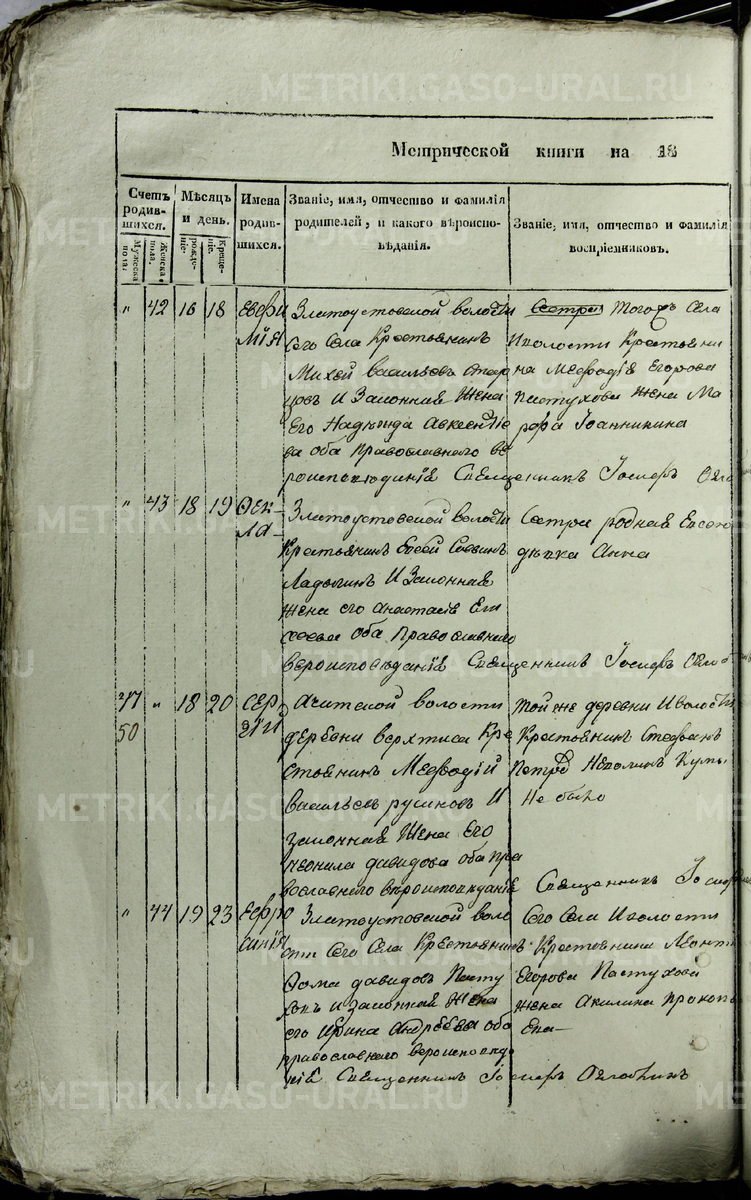 METRIKI.GASO-URAL.RU
Метрической книги на 18
Счетъ родив-шихся.
Мужеска пола.
Женска пола.
Мѣсяцъ и день.
рожде-нія:
креще-нія.
Имена родив-шихся.
Званіе, имя, отчество и фамилія
родителей, и какого вѣроиспо-
вѣданія.
Званіе, имя, отчество и фамилія
воспріемниковъ.
" 42 16 18 Евфи
мія
Златоустовской волости
Сего села Крестьянинъ
Михей васильевъ
и законная жена
его Надежда Авксентie
ва оба православнаго вѣ
роисповѣданія Священникъ Іосифъ
Сестра Тогожъ села
И волости Крестьяни
на Мефодія Егорова
Пастухова жена Ма
рфа Іоанникина
" 43 18 19 Ѳек-
ла-
Златоустовской волости
Крестьянинъ
Ладыгинъ И законная
жена его анастасія
оба православнаго
вѣроисповѣданія Священникъ Іосифъ
Сестра родная
дѣвка Анна
47 " 18 20 Сер
гій
50
Ачитской волости
деревни верхтиса Кре
стьянинъ Мефодій
васильевъ русиновъ И
законная жена Его
неонила давидова оба пра
вославнаго вѣроисповѣданія Священникъ Іосифъ
той же деревни И волости
Крестьянинъ Стефанъ
Петровъ Кумы
не было
" 44 19 23 Ефро
синія
Златоустовской воло
сти Сего Села Крестьянинъ
Ѳома давидовъ Пасту
ховъ и законная жена
его Ирина Андреева оба
православнаго вероисповѣда
нія Священникъ Іосифъ
Сего Села И волости
Крестьянина Леонтія
Егорова Пастухова
жена Акилина Прокопь
ева-